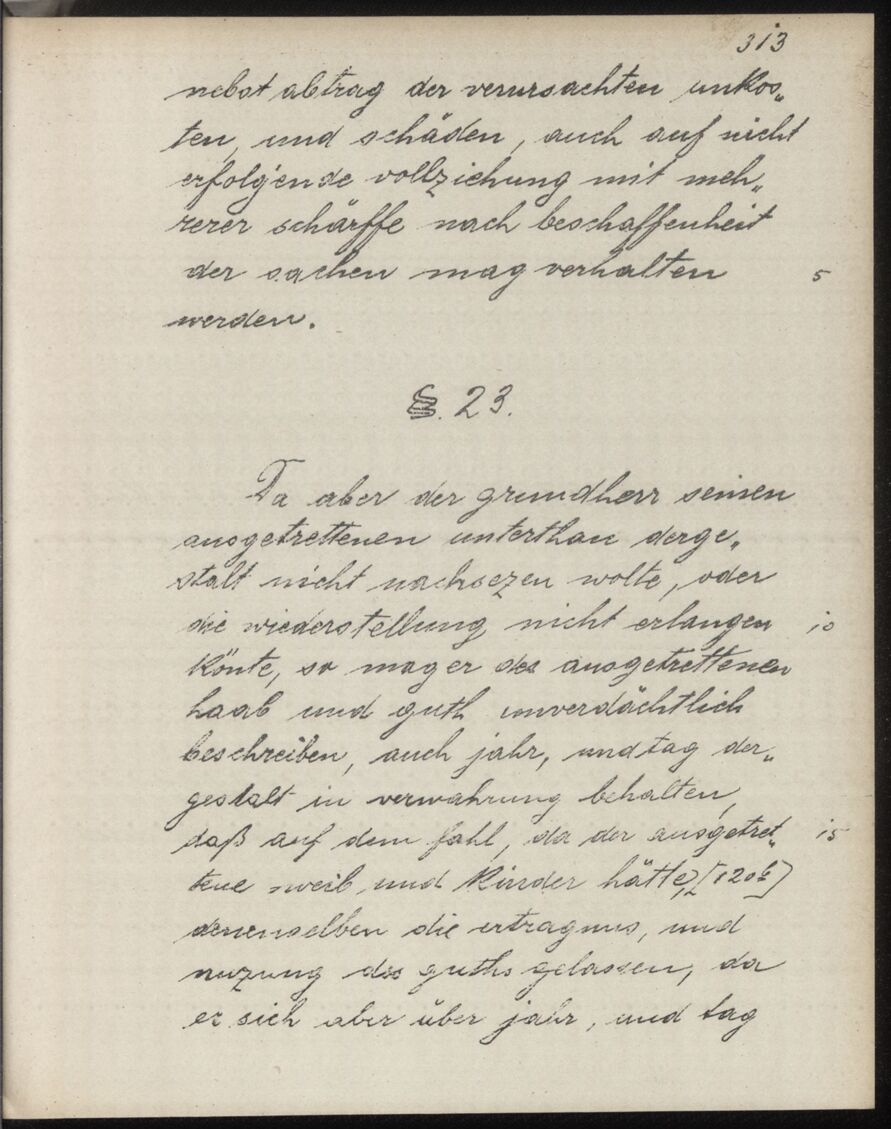 313
nebst abtrag der verursachten unkos„
ten, und schäden, auch auf nicht
erfolgende vollziehung mit meh„
rerer schärffe nach beschaffenheit
der sachen mag verhalten 5
werden.
§. 23.
Da aber der grundherr seinen
ausgetrettenen unterthan derge„
stalt nicht nachsezen wolte, oder
die wiederstellung nicht erlangen 10
könte, so mag er des ausgetrettenen
haab und guth unverdächtlich
beschreiben, auch jahr, und tag der„
gestalt in verwahrung behalten,
daß auf dem fahl, da der ausgetret„ 15
tene weib und kinder hätte, [120b]
denenselben die ertragnus, und
nuzung des guths gelassen, da
er sich aber über jahr, und tag